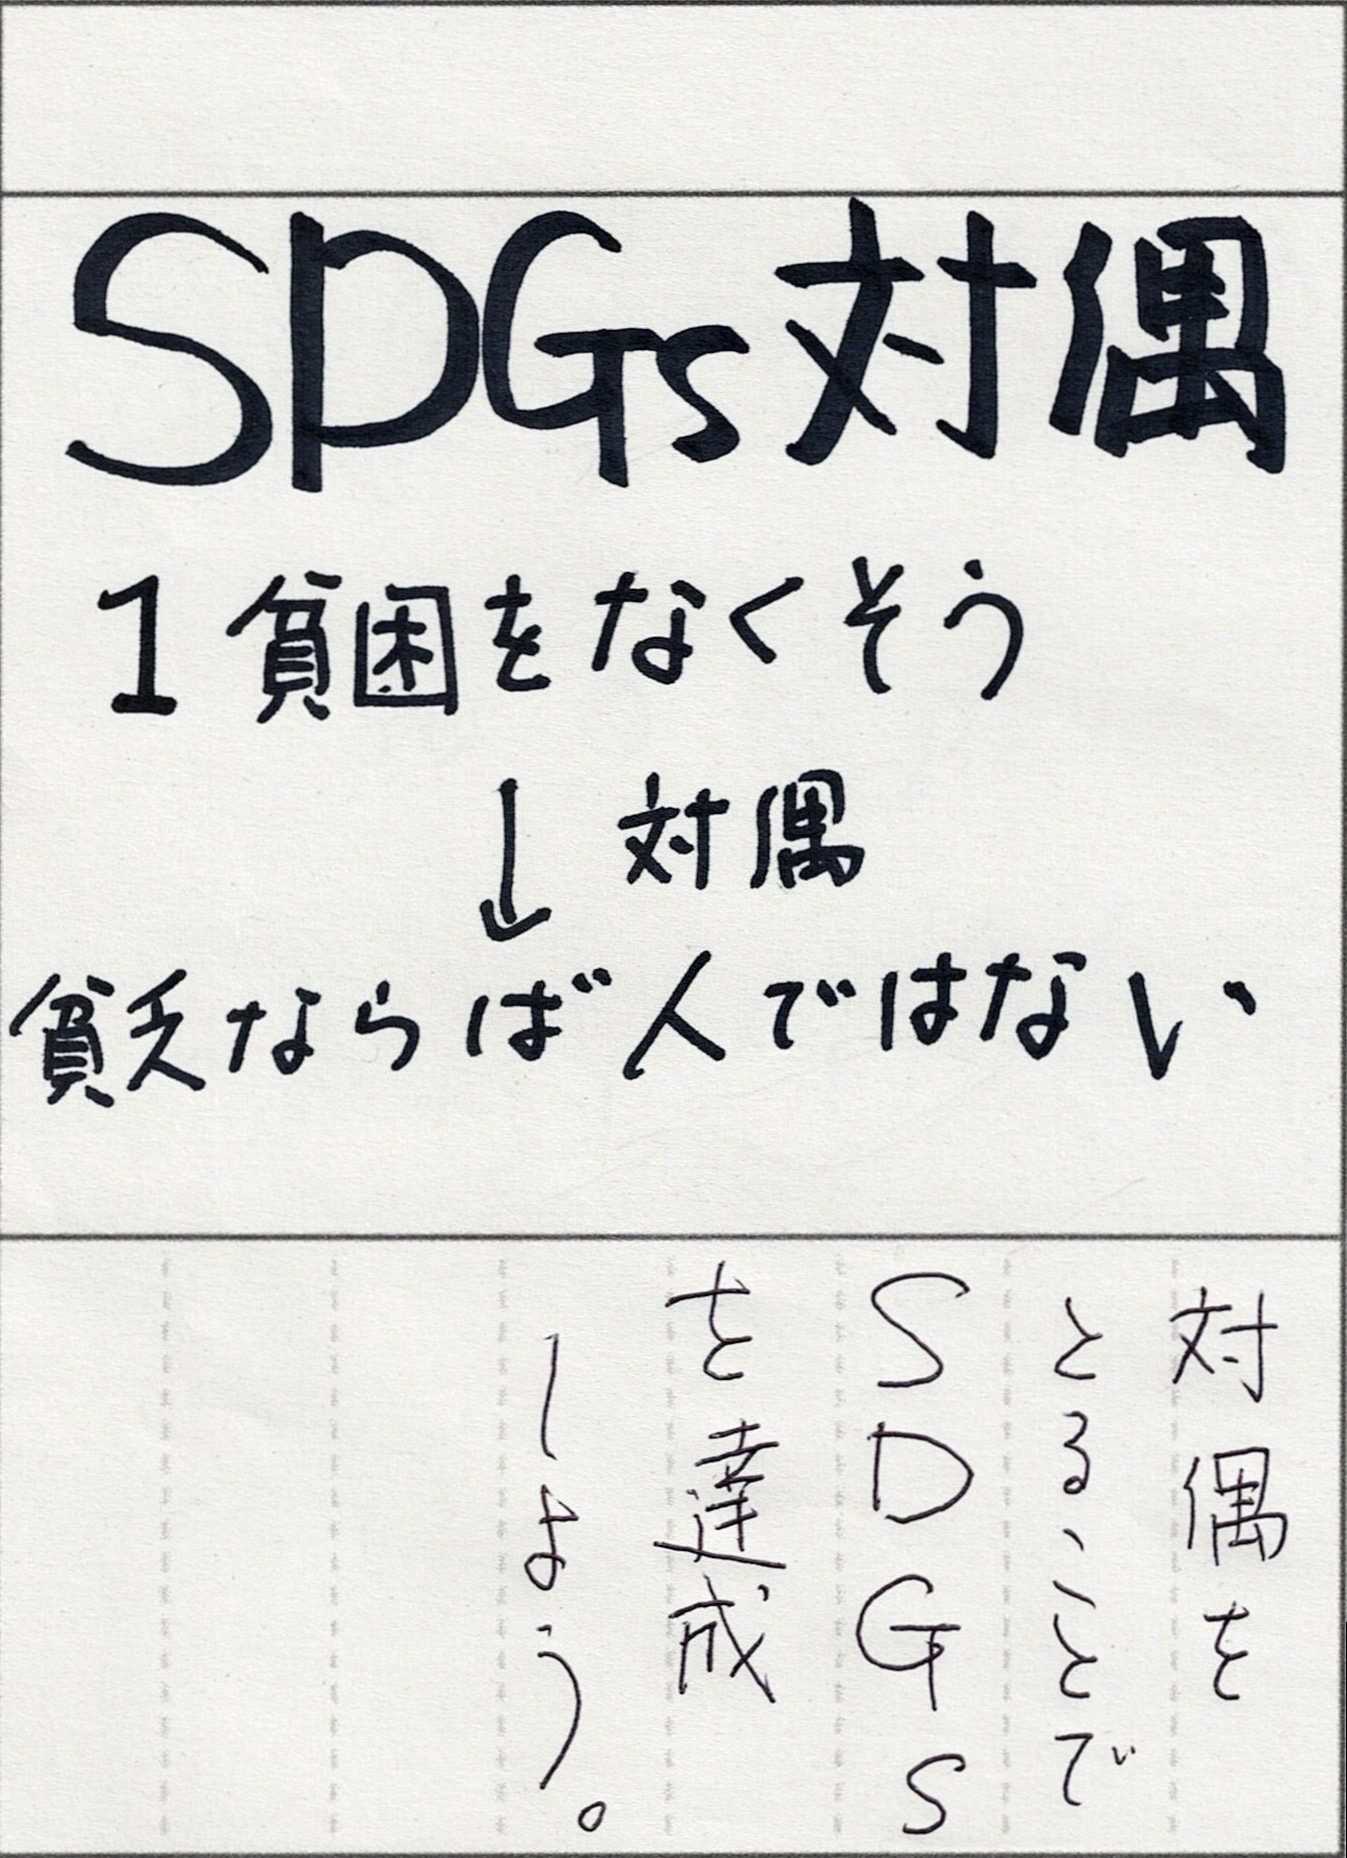 SDGs対偶
1 貧困をなくそう
↓ 対偶
貧乏ならば人ではない
対偶を
とることで
SDGs
を達成
しよう。